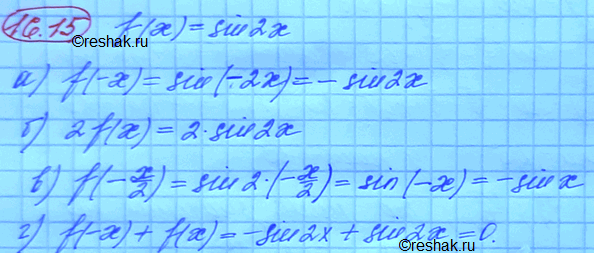 16.15 f(x) = sin2x
©reshak.ru
а) f(-x) = sin(-2x) = - sin2x
б) 2f(x) = 2·sin2x
в) f(-x/2) = sin2·(-x/2) = sin(-x) = -sinx
©reshak.ru
г) f(-x) + f(x) = -sin2x + sin2x = 0.
©reshak.ru